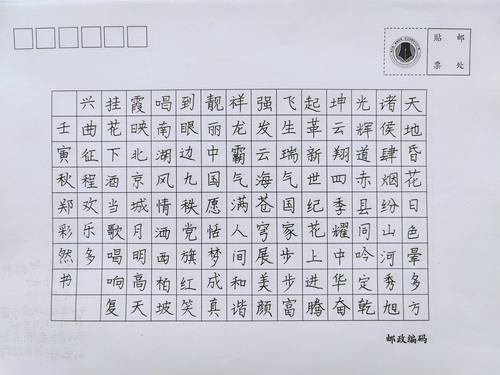 贴邮
票处
天地昏花日色晕多方
诸侯肆烟纷山河秀旭
光辉道赤县同吟定乾
坤云翔四季耀中华奋
起革新世纪花上进腾
飞生瑞气国家步步富
强发云海苍穹展美颜
祥龙霸气满人间和谐
靓丽中国愿恬梦成真
到眼边九秩党旗红笑
唱南湖风情洒西柏坡
霞映北京城月明高天
挂花下酒当歌唱响复
兴曲征程欢乐多
壬寅秋郑彩然书
邮政编码